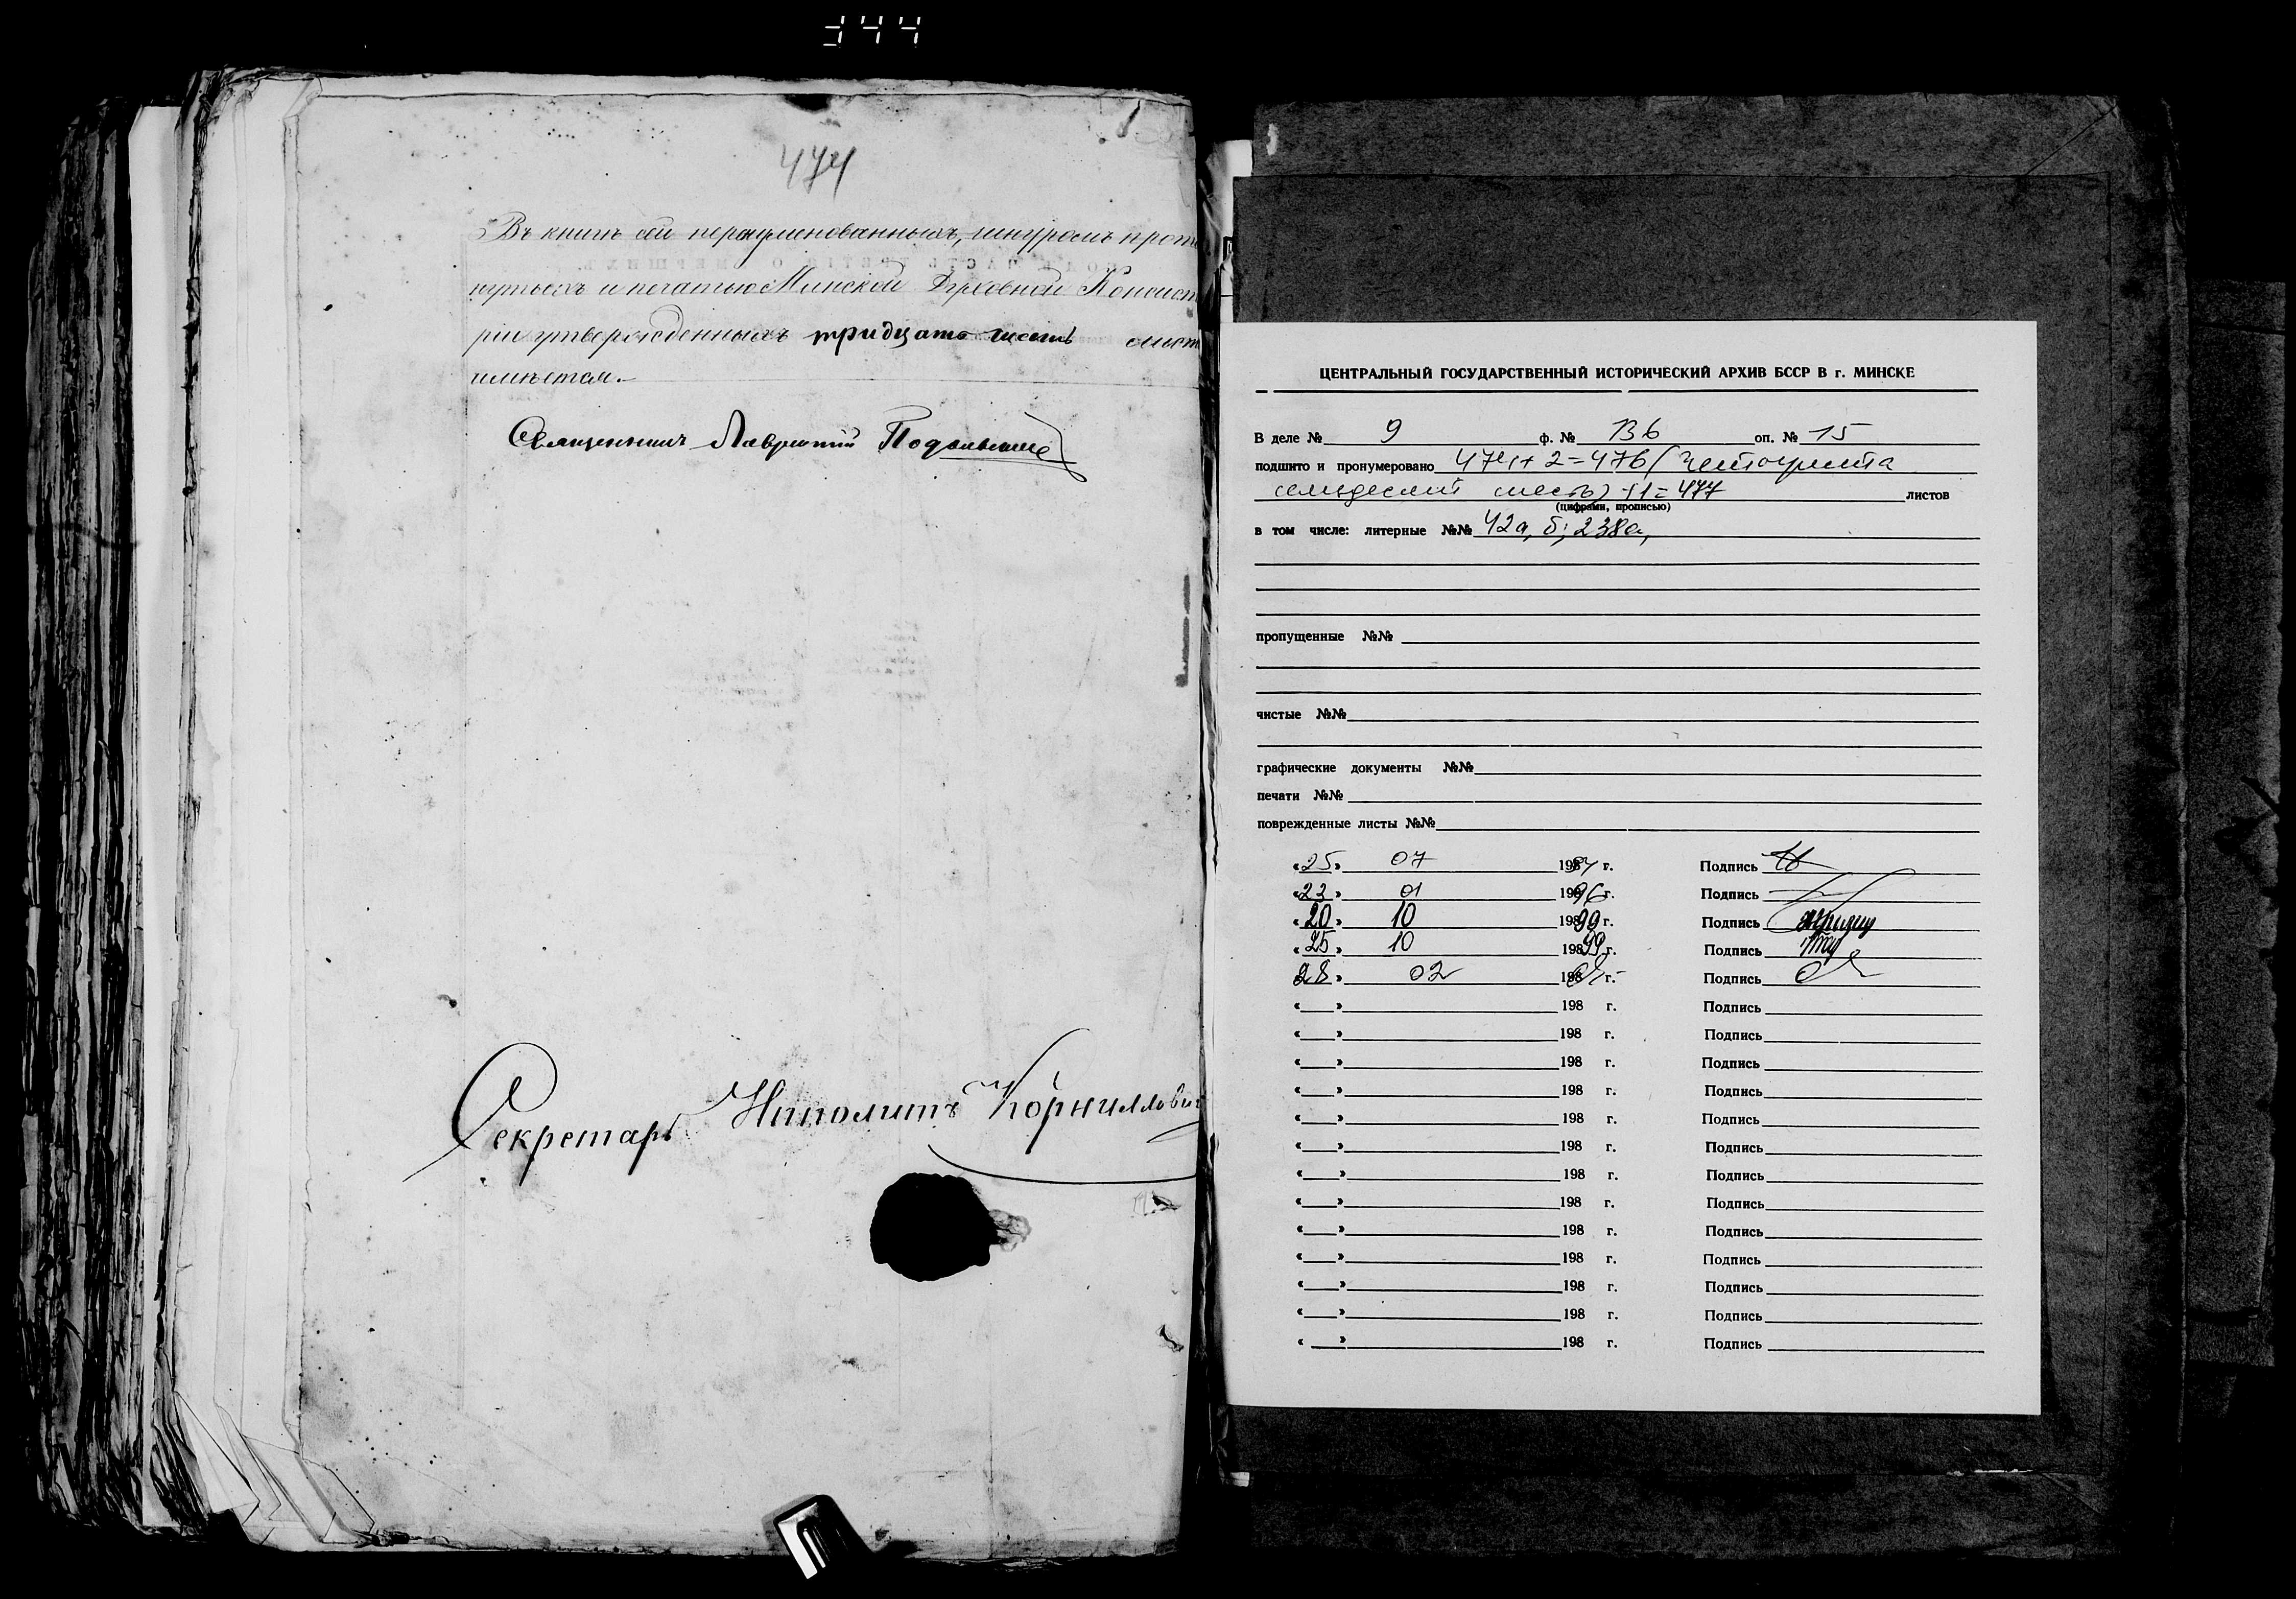 344
474
Въ книгѣ сей перенумерованныхъ, шнуромъ протя
нутыхъ и печатью Минской Духовной Консисто
ріи утвержденныхъ тридцать шесть лист
имѣется.
Священникъ Лаврентій
Секретарь Ипполитъ Корниллович
ЦЕНТРАЛЬНЫЙ ГОСУДАРСТВЕННЫЙ ИСТОРИЧЕСКИЙ АРХИВ БССР В г. МИНСКЕ
В деле № 9 ф. № 136 оп. № 15
подшито и пронумеровано 474+2=476 (четыреста
семьдесят шесть) +1=477 листов
(цифрами, прописью)
в том числе: литерные №№ 42а, б; 238а,
пропущенные №№
чистые №№
графические документы №№
печати №№
поврежденные листы №№
«25» 07 198 г. Подпись
«23» 01 19896 г. Подпись
«20» 10 19899 г. Подпись
«25» 10 19899 г. Подпись
28 » 02 198 г. Подпись
« » 198 г. Подпись
« » 198 г. Подпись
« » 198 г. Подпись
« » 198 г. Подпись
« » 198 г. Подпись
« » 198 г. Подпись
« » 198 г. Подпись
« » 198 г. Подпись
« » 198 г. Подпись
« » 198 г. Подпись
« » 198 г. Подпись
« » 198 г. Подпись
« » 198 г. Подпись